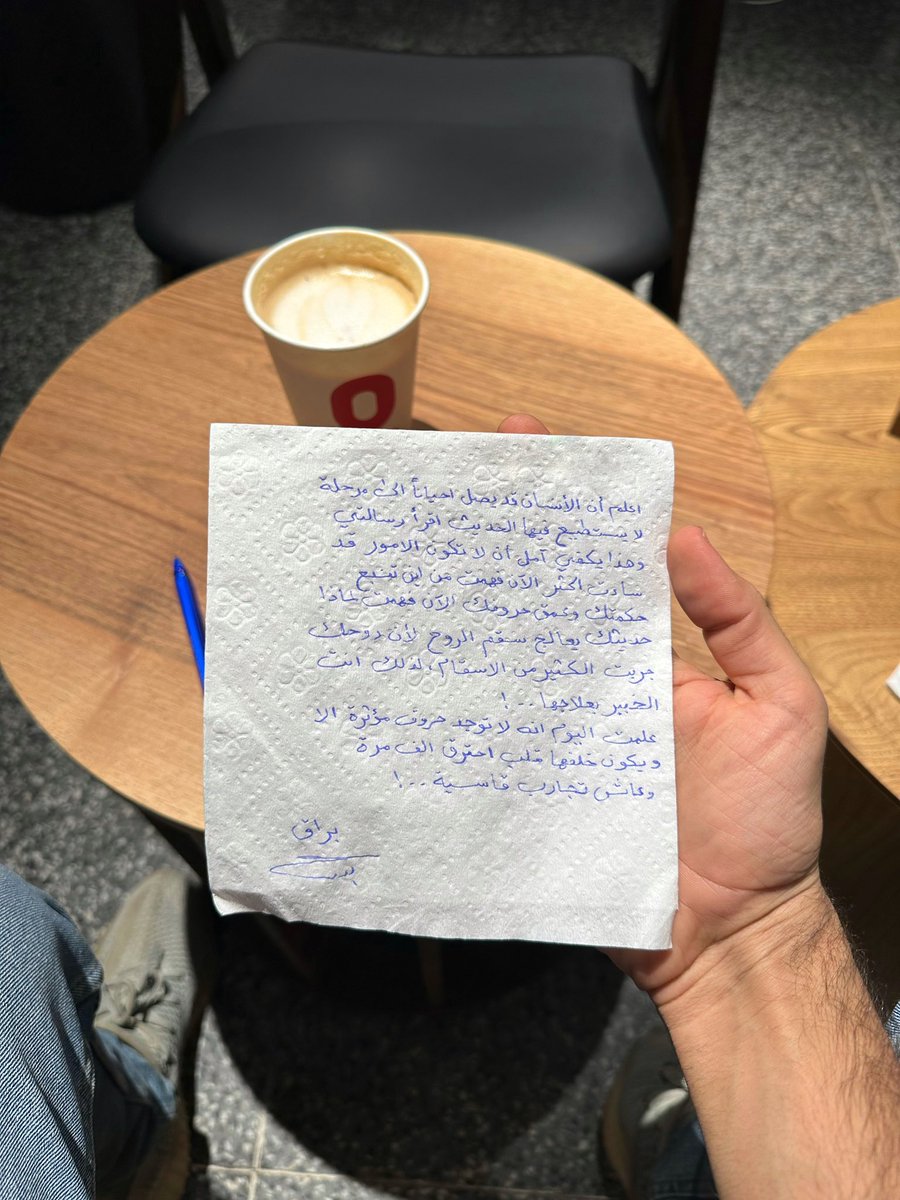 اعلم أن الأنسان قد يصل احياناً الى مرحلة
لا يستطيع فيها الحديث اقرأ رسالتي
وهذا يكفي آمل أن لا تكون الامور قد
ساءت اكثر الآن فهمت من اين تنبع
حكمتك وعمق حروفك الآن فهمت لماذا
حديثك يعالج سقم الروح لأن روحك
جربت الكثير من الاسقام، لذلك انت
الخبير بعلاجها...!
علمت اليوم انه لا توجد حروف مؤثرة الا
ويكون خلفها قلب احترق الف مرة
وعاش تجارب قاسية...!
براق